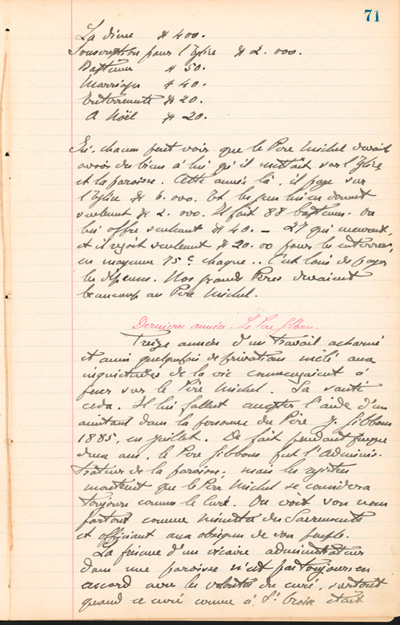 71
La dime $400.
Souscription pour l'Eglise $2.000.
Baptêmes $50.
Marriages $40.
Enterrements $20.
A Noël $20.
Ici chacun peut voir que le Père Michel devait
avoir des biens à lui qu'il mettait sur l'Eglise
et la paroisse. Cette année là, il paye sur
l'Eglise $6.000. Et les gens lui en donnent
seulement $2.000. Il fait 88 baptêmes. On
lui offre seulement $40. — 27 qui meurent,
et il reçoit seulement $20.00 pour les enterrer,
en moyenne 75c chaque.. C'est loin de payer
les dépenses. Nos grands Pères devaient
beaucoup au Père Michel.
Dernières années. Le Père Gibbons.
Treize années d'un travail acharné
et aussi quelquefois de privations mêlé aux
inquiétudes de la vie commençaient à
peser sur le Père Michel. Sa santé
céda. Il lui fallut accepter l'aide d'un
assistant dans la personne du Père J. Gibbons
1885, en juillet. De fait pendant presque
d'un an, le Père Gibbons fut l'adminis-
trateur de la paroisse, mais les registres
montrent que le Père Michel se considéra
toujours comme le Curé. On voit son nom
partout comme ministre des Sacrements
et officiant aux obsèques de son peuple.
La présence d'un vicaire administrateur
dans une paroisse n'est pas toujours en
accord avec les volontés du curé, surtout
quand ce curé comme à Ste Croix était